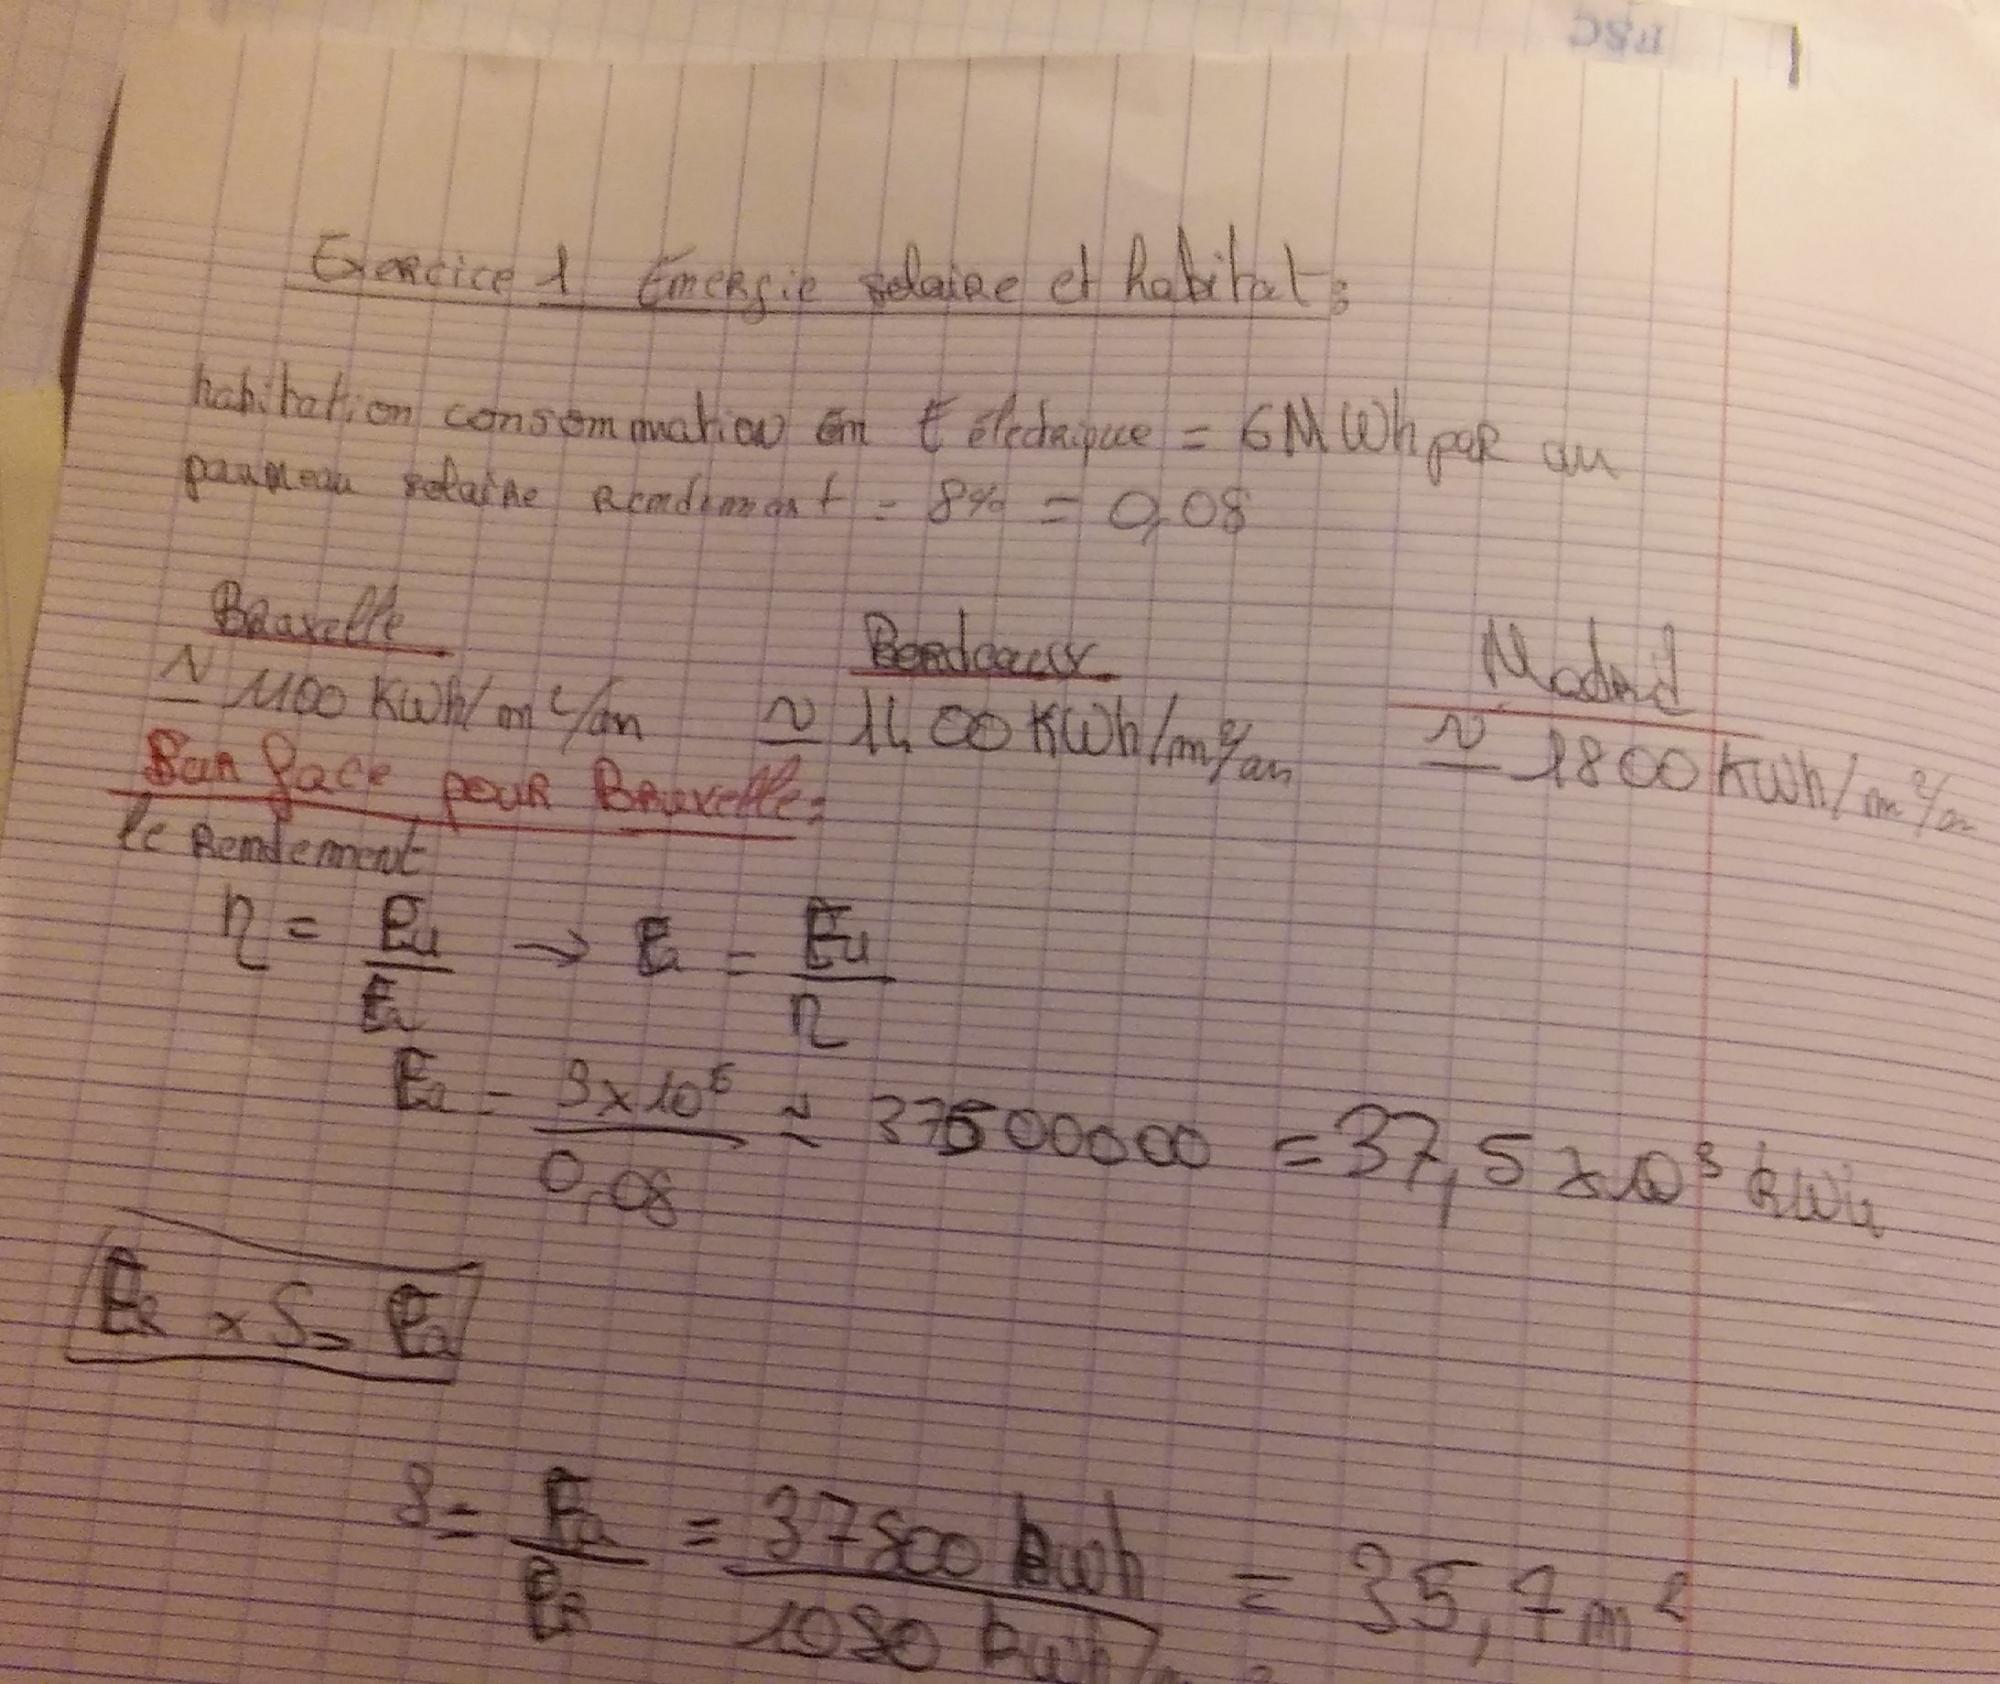 Exercice 1 Energie solaire et habitat :
habitation consommation en E électrique = 6MWh par an
panneau solaire rendement = 8% = 0,08
Bruxelle Bordeaux Madrid
≃ 1100 KWh/m²/an ≃ 1400 KWh/m²/an ≃ 1800 KWh/m²/an
Surface pour Bruxelle :
le rendement
η = Eu/Ea → Ea = Eu/η
Ea = 3x10⁶/0,08 ≃ 37500000 = 37,5 x 10³ kWh
ER x S = Ea
S = Ea/ER = 37500 kWh/1050 kWh/m² = 35,7 m²